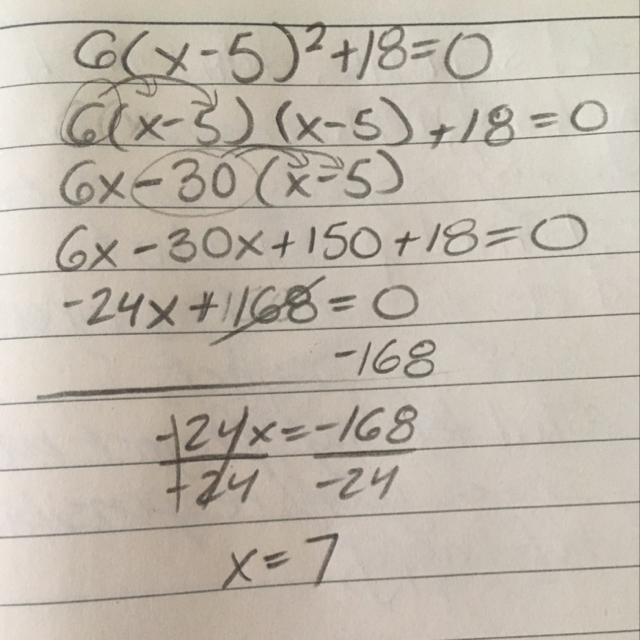 6(x-5)²+18=0
6(x-5)(x-5)+18=0
6x-30(x-5)
6x-30x+150+18=0
-24x+168=0
-168
-24x=-168
-24 -24
x=7